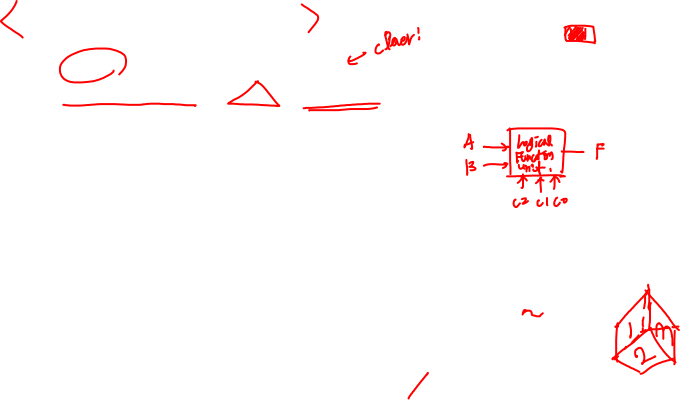 claer!
A
B
Logical
Function
unit.
F
C2 C1 C0
~
2